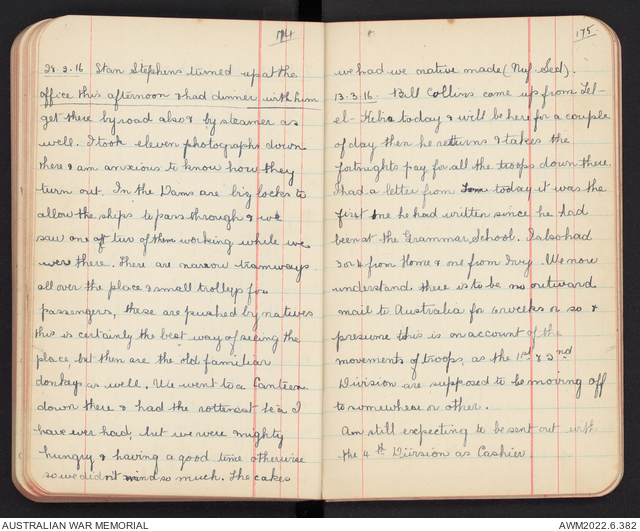 174
28.3.16 Stan Stephens turned up at the
office this afternoon & had dinner with him
get there by road also & by steamer as
well. I took eleven photographs down
there & am anxious to know how they
turn out. In the Dams are big locks to
allow the ships to pass through & we
saw one or two of them working while we
were there. There are narrow tramways
all over the place & small trolleys for
passengers, these are pushed by natives
this is certainly the best way of seeing the
place, but then are the old familiar
donkeys as well. We went to a Canteen
down there & had the rottenest tea I
have ever had, but we were mighty
hungry & having a good time otherwise
so we didn't mind so much. The cakes
175
we had we native made (Nuf Sed).
13.3.16. Bill Collins came up from Tel-
el-Kebir today & will be here for a couple
of day then he returns & takes the
fortnights pay for all the troops down there
I had a letter from Tom today it was the
first one he had written since he had
been at the Grammar School. I also had
3 or 4 from Home & one from Ivy. We now
understand there is to be no outward
mail to Australia for 6 weeks or so &
presume this is on account of the
movements of troops, as the 1st & 2nd
Division are supposed to be moving off
to somewhere or other.
Am still expecting to be sent out with
the 4th Division as Cashier
AUSTRALIAN WAR MEMORIAL
AWM2022.6.382